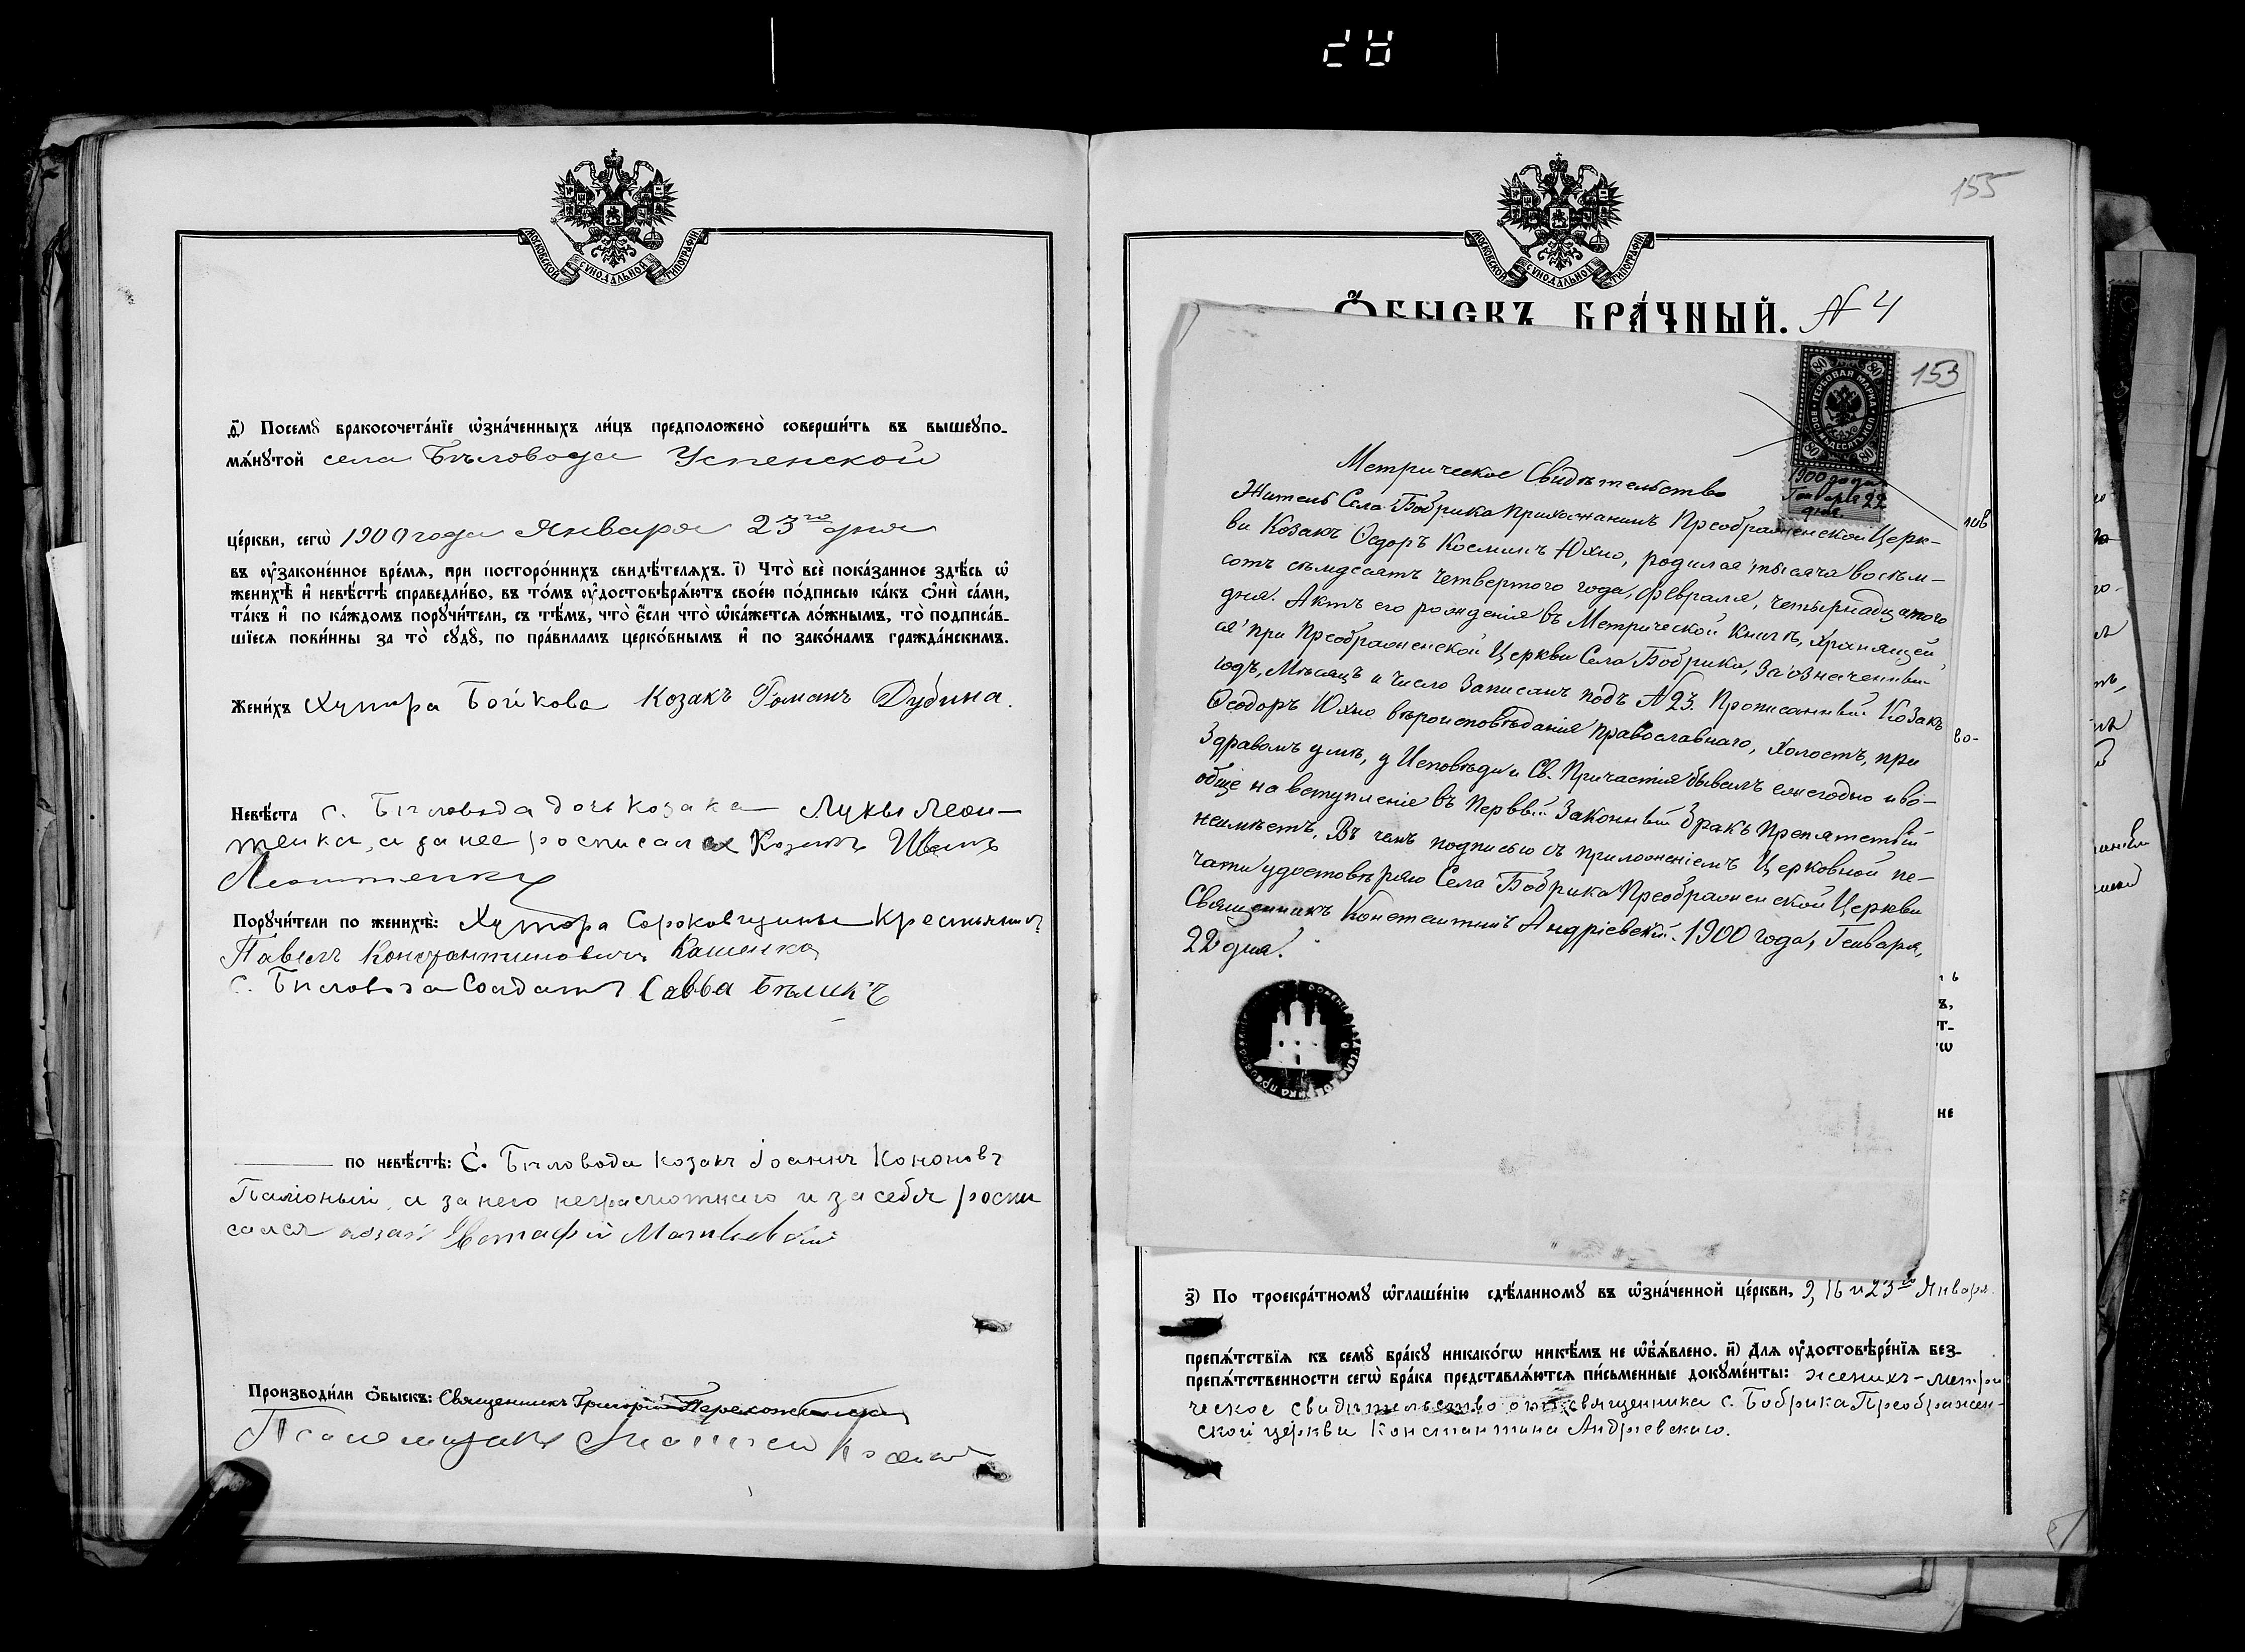 МОСКОВСКОЙ СѴНОДАЛЬНОЙ ТИПОГРАФІИ
д҃) Посемꙋ бракосочета́нїе ѡзна́ченныхъ ли́цъ предположено̀ соверши́ть въ вышеꙋпо-
мѧ́нꙋтой села Бѣловода Успенской
це́ркви, сегѡ̀ 1900 года Января 23го дня
въ ᲂу҆зако́ненное вре́мѧ, при посторо́ннихъ свидѣ́телѧхъ. і҃) Что̀ всѐ пока́занное здѣ́сь ѡ҆
женихѣ̀ и҆ невѣ́стѣ справедли́во, въ то́мъ ᲂу҆достовѣрѧ́ютъ свое́ю по́дписью ка́къ ѻ҆нѝ са́ми,
та́къ и҆ по ка́ждомъ порꙋчи́тели, съ тѣ́мъ, что̀ є҆́сли что̀ ѡ҆ка́жетсѧ ло́жнымъ, то̀ подписа́в-
шїесѧ пови́нны за то̀ сꙋдꙋ̀, по пра́виламъ церко́внымъ и҆ по зако́намъ гражда́нскимъ.
Жени́хъ Хутора Бойкова Козакъ Романъ Дубина.
Невѣ́ста с. Бѣловода дочь козака Луки Леон-
тенка, а за нее росписался Козакъ Иванъ
Леонтенко
Порꙋчи́тели по женихѣ̀: Хутора Сороковщины Крестьянинъ
Павелъ Константиновичъ Кашенко
с. Бѣловода Солдатъ Савва Бѣликъ
по невѣ́стѣ: С. Бѣловода козакъ Іоаннъ Кононовъ
а за него неграмотнаго и за себя роспи
сался козакъ Евстафій
Производи́ли ѻ҆́быскъ: Священникъ Григорій
Псаломщикъ
155
МОСКОВСКОЙ СѴНОДАЛЬНОЙ ТИПОГРАФІИ
Ѻ҆́БЫСКЪ БРА́ЧНЫЙ. N 4
153
80 80
ГЕРБОВАЯ МАРКА ВОСЕМЬДЕСЯТЪ КОП.
80 80
1900 года
Генваря 22
дня.
Метрическое Свидѣтельство
Житель Села Бобрика Прихожанинъ Преображенской Церк-
ви Козакъ Ѳеодоръ Косминъ Юхно, родился тысяча восѣм-
сотъ сѣмдесятъ четвертого года, Февраля, четырнадцатого
дня. Актъ его рожденія въ Метрической Книгѣ, хранящей
ся при Преображенской Церкви Села Бобрика, за означенный
годъ, Мѣсяцъ и число записанъ подъ N 23. Прописанный Козакъ
Ѳеодоръ Юхно вѣроисповѣданія Православнаго, холостъ, при
здравомъ умѣ, у Исповѣди и Св. Причастія бываетъ ежегодно и во-
обще на вступленіе въ Первый Законный бракъ препятствій
неимѣетъ, въ чемъ подписью съ приложеніемъ Церковной пе-
чати удостовѣряю Села Бобрика Преображенской Церкви
Священникъ Константинъ Андріевскій. 1900 года, Генваря,
22 дня.
з҃) По троекра́тномꙋ ѡ҆глаше́нїю сдѣ́ланномꙋ въ ѡ҆зна́ченной це́ркви, 9, 16 и 23го Января
препѧ́тствїѧ къ семꙋ̀ бра́кꙋ никако́гѡ никѣ́мъ не ѡ҆б̾ѧ́влено. и҃) Длѧ ᲂу҆достовѣре́нїѧ без-
препѧ́тственности сегѡ̀ бра́ка представлѧ́ютсѧ пи́сьменные докꙋме́нты: женихъ - метри
ческое свидѣтельство отъ священника с. Бобрика Преображен-
ской церкви Константина Андріевскаго.